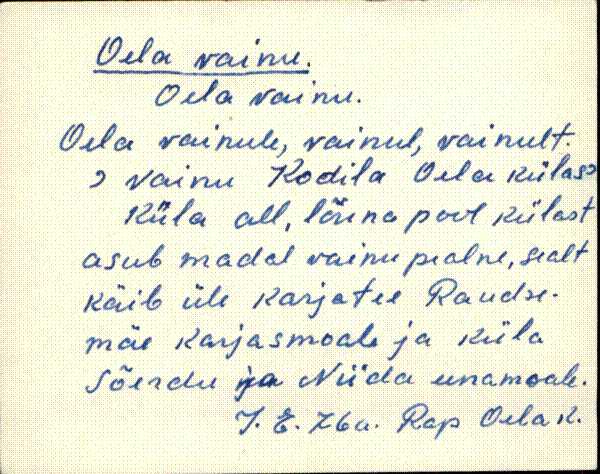 Oela vainu.
Oela vainu.
Oela vainule, vainul, vainult.
> vainu Kodila Oela külas>
Küla all, lõuna pool külast
asub madal vainu pealne, sealt
käib üle karjatee Raudse-
mäe karjasmoale ja küla
Sõerdu ja Niida einamoale.
J. E. 76a. Rap Oela k.